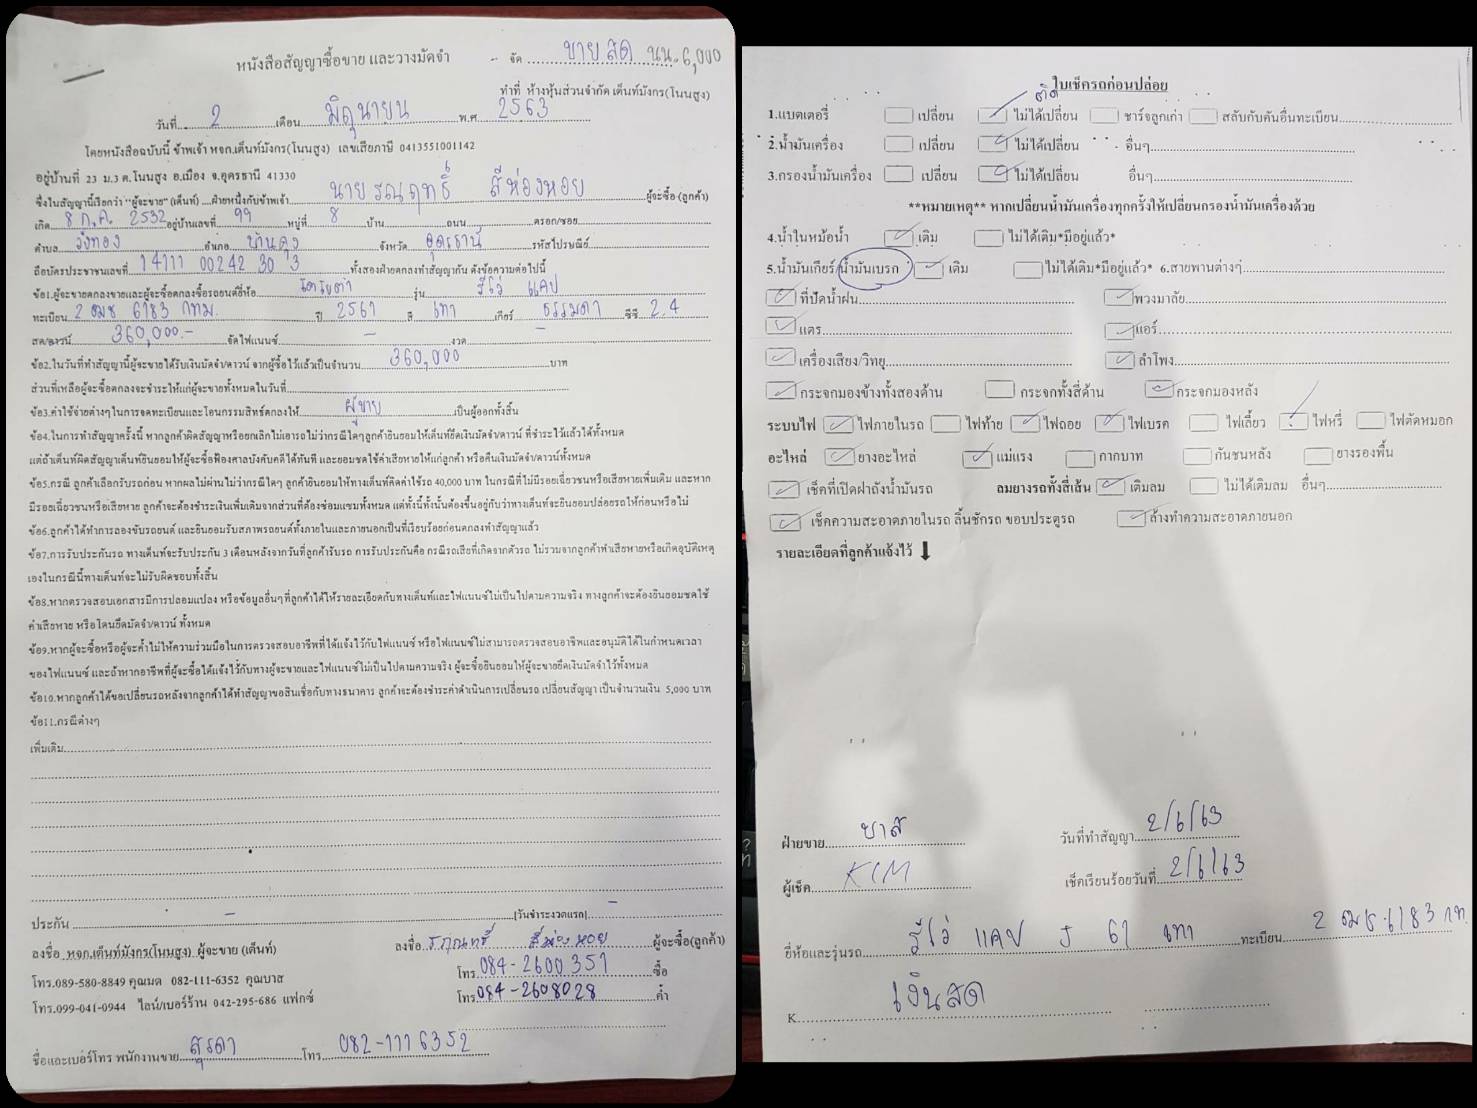 หนังสือสัญญาซื้อขาย และวางมัดจำ
จัด ขายสด นน. 6,000
ทำที่ ห้างหุ้นส่วนจำกัด เต็นท์มังกร(โนนสูง)
วันที่ 2 เดือน มิถุนายน พ.ศ 2563
โดยหนังสือฉบับนี้ ข้าพเจ้า หจก.เต็นท์มังกร(โนนสูง) เลขเสียภาษี 0413551001142
อยู่บ้านที่ 23 ม.3 ต.โนนสูง อ.เมือง จ.อุดรธานี 41330
ซึ่งในสัญญานี้เรียกว่า "ผู้จะขาย" (เต็นท์) ....ฝ่ายหนึ่งกับข้าพเจ้า นายรณฤทธิ์ สีห่องหอย ผู้จะซื้อ (ลูกค้า)
เกิด 8 ก.ค. 2532 อยู่บ้านเลขที่ 99 หมู่ที่ 8 บ้าน ถนน ตรอก/ซอย
ตำบล วังทอง อำเภอ บ้านดุง จังหวัด อุดรธานี รหัสไปรษณีย์
ถือบัตรประชาชนเลขที่ 14111 00242 30 3 ทั้งสองฝ่ายตกลงทำสัญญากัน ดังข้อความต่อไปนี้
ข้อ1.ผู้จะขายตกลงขายและผู้จะซื้อตกลงซื้อรถยนต์ยี่ห้อ โตโยต้า รุ่น รีโว่ แคป
ทะเบียน 2 ฒษ 6183 กทม. ปี 2561 สี เทา เกียร์ ธรรมดา ซีซี 2.4
สด/ดาวน์ 360,000.- จัดไฟแนนซ์ - งวด -
ข้อ2.ในวันที่ทำสัญญานี้ผู้จะขายได้รับเงินมัดจำ/ดาวน์ จากผู้ซื้อไว้แล้วเป็นจำนวน 360,000 บาท
ส่วนที่เหลือผู้จะซื้อตกลงจะชำระให้แก่ผู้จะขายทั้งหมดในวันที่
ข้อ3.ค่าใช้จ่ายต่างๆในการจดทะเบียนและโอนกรรมสิทธิ์ตกลงให้ ผู้ขาย เป็นผู้ออกทั้งสิ้น
ข้อ4.ในการทำสัญญาครั้งนี้ หากลูกค้าผิดสัญญาหรือยกเลิกไม่เอารถ ไม่ว่ากรณีใดๆลูกค้ายินยอมให้เต็นท์ยึดเงินมัดจำ/ดาวน์ ที่ชำระไว้แล้วได้ทั้งหมด
แต่ถ้าเต็นท์ผิดสัญญาเต็นท์ยินยอมให้ผู้จะซื้อฟ้องศาลบังคับคดีได้ทันที และยอมชดใช้ค่าเสียหายให้แก่ลูกค้า หรือคืนเงินมัดจำ/ดาวน์ทั้งหมด
ข้อ5.กรณี ลูกค้าเลือกรับรถก่อน หากผลไม่ผ่านไม่ว่ากรณีใดๆ ลูกค้ายินยอมให้ทางเต็นท์คิดค่าใช้รถ 40,000 บาท ในกรณีที่ไม่มีรอยเฉี่ยวชนหรือเสียหายเพิ่มเติม และหาก
มีรอยเฉี่ยวชนหรือเสียหาย ลูกค้าจะต้องชำระเงินเพิ่มเติมจากส่วนที่ต้องซ่อมแซมทั้งหมด แต่ทั้งนี้ทั้งนั้นต้องขึ้นอยู่กับว่าทางเต็นท์จะยินยอมปล่อยรถให้ก่อนหรือไม่
ข้อ6.ลูกค้าได้ทำการลองขับรถยนต์ และยินยอมรับสภาพรถยนต์ทั้งภายในและภายนอกเป็นที่เรียบร้อยก่อนตกลงทำสัญญาแล้ว
ข้อ7.การรับประกันรถ ทางเต็นท์จะรับประกัน 3 เดือนหลังจากวันที่ลูกค้ารับรถ การรับประกันคือ กรณีรถเสียที่เกิดจากตัวรถ ไม่รวมจากลูกค้าทำเสียหายหรือเกิดอุบัติเหตุ
เองในกรณีนี้ทางเต็นท์จะไม่รับผิดชอบทั้งสิ้น
ข้อ8.หากตรวจสอบเอกสารมีการปลอมแปลง หรือข้อมูลอื่นๆที่ลูกค้าได้ให้รายละเอียดกับทางเต็นท์และไฟแนนซ์ไม่เป็นไปตามความจริง ทางลูกค้าจะต้องยินยอมชดใช้
ค่าเสียหาย หรือโดนยึดมัดจำ/ดาวน์ ทั้งหมด
ข้อ9.หากผู้จะซื้อหรือผู้จะค้ำไม่ให้ความร่วมมือในการตรวจสอบอาชีพที่ได้แจ้งไว้กับไฟแนนซ์ หรือไฟแนนซ์ไม่สามารถตรวจสอบอาชีพและอนุมัติได้ในกำหนดเวลา
ของไฟแนนซ์ และถ้าหากอาชีพที่ผู้จะซื้อได้แจ้งไว้กับทางผู้จะขายและไฟแนนซ์ไม่เป็นไปตามความจริง ผู้จะซื้อยินยอมให้ผู้จะขายยึดเงินมัดจำไว้ทั้งหมด
ข้อ10.หากลูกค้าได้ขอเปลี่ยนรถหลังจากลูกค้าได้ทำสัญญาขอสินเชื่อกับทางธนาคาร ลูกค้าจะต้องชำระค่าดำเนินการเปลี่ยนรถ เปลี่ยนสัญญา เป็นจำนวนเงิน 5,000 บาท
ข้อ11.กรณีต่างๆ
เพิ่มเติม
ประกัน - [วันชำระงวดแรก] -
ลงชื่อ หจก.เต็นท์มังกร(โนนสูง) ผู้จะขาย (เต็นท์) ลงชื่อ รณฤทธิ์ สีห่องหอย ผู้จะซื้อ(ลูกค้า)
โทร.089-580-8849 คุณมด 082-111-6352 คุณบาส โทร. 084-2600351 ซื้อ
โทร.099-041-0944 ไลน์/เบอร์ร้าน 042-295-686 แฟกซ์ โทร. 084-2608028 ค้ำ
ชื่อและเบอร์โทร พนักงานขาย สุรดา โทร 082-1116352
ใบเช็ครถก่อนปล่อย
1.แบตเตอรี่ เปลี่ยน ไม่ได้เปลี่ยน ชาร์จลูกเก่า สลับกับคันอื่นทะเบียน
2.น้ำมันเครื่อง เปลี่ยน ไม่ได้เปลี่ยน อื่นๆ
3.กรองน้ำมันเครื่อง เปลี่ยน ไม่ได้เปลี่ยน อื่นๆ
**หมายเหตุ** หากเปลี่ยนน้ำมันเครื่องทุกครั้งให้เปลี่ยนกรองน้ำมันเครื่องด้วย
4.น้ำในหม้อน้ำ เติม ไม่ได้เติม*มีอยู่แล้ว*
5.น้ำมันเกียร์/น้ำมันเบรก เติม ไม่ได้เติม*มีอยู่แล้ว* 6.สายพานต่างๆ
ที่ปัดน้ำฝน พวงมาลัย
แตร แอร์
เครื่องเสียง/วิทยุ ลำโพง
กระจกมองข้างทั้งสองด้าน กระจกทั้งสี่ด้าน กระจกมองหลัง
ระบบไฟ ไฟภายในรถ ไฟท้าย ไฟถอย ไฟเบรค ไฟเลี้ยว ไฟหรี่ ไฟตัดหมอก
อะไหล่ ยางอะไหล่ แม่แรง กากบาท กันชนหลัง ยางรองพื้น
เช็คที่เปิดฝาถังน้ำมันรถ ลมยางรถทั้งสี่เส้น เติมลม ไม่ได้เติมลม อื่นๆ
เช็คความสะอาดภายในรถ ลิ้นชักรถ ขอบประตูรถ ล้างทำความสะอาดภายนอก
รายละเอียดที่ลูกค้าแจ้งไว้
ฝ่ายขาย บาส วันที่ทำสัญญา 2/6/63
ผู้เช็ค KIM เช็คเรียบร้อยวันที่ 2/6/63
ยี่ห้อและรุ่นรถ รีโว่ แคป J 61 เทา ทะเบียน 2 ฒษ.6183 กท.
K เงินสด